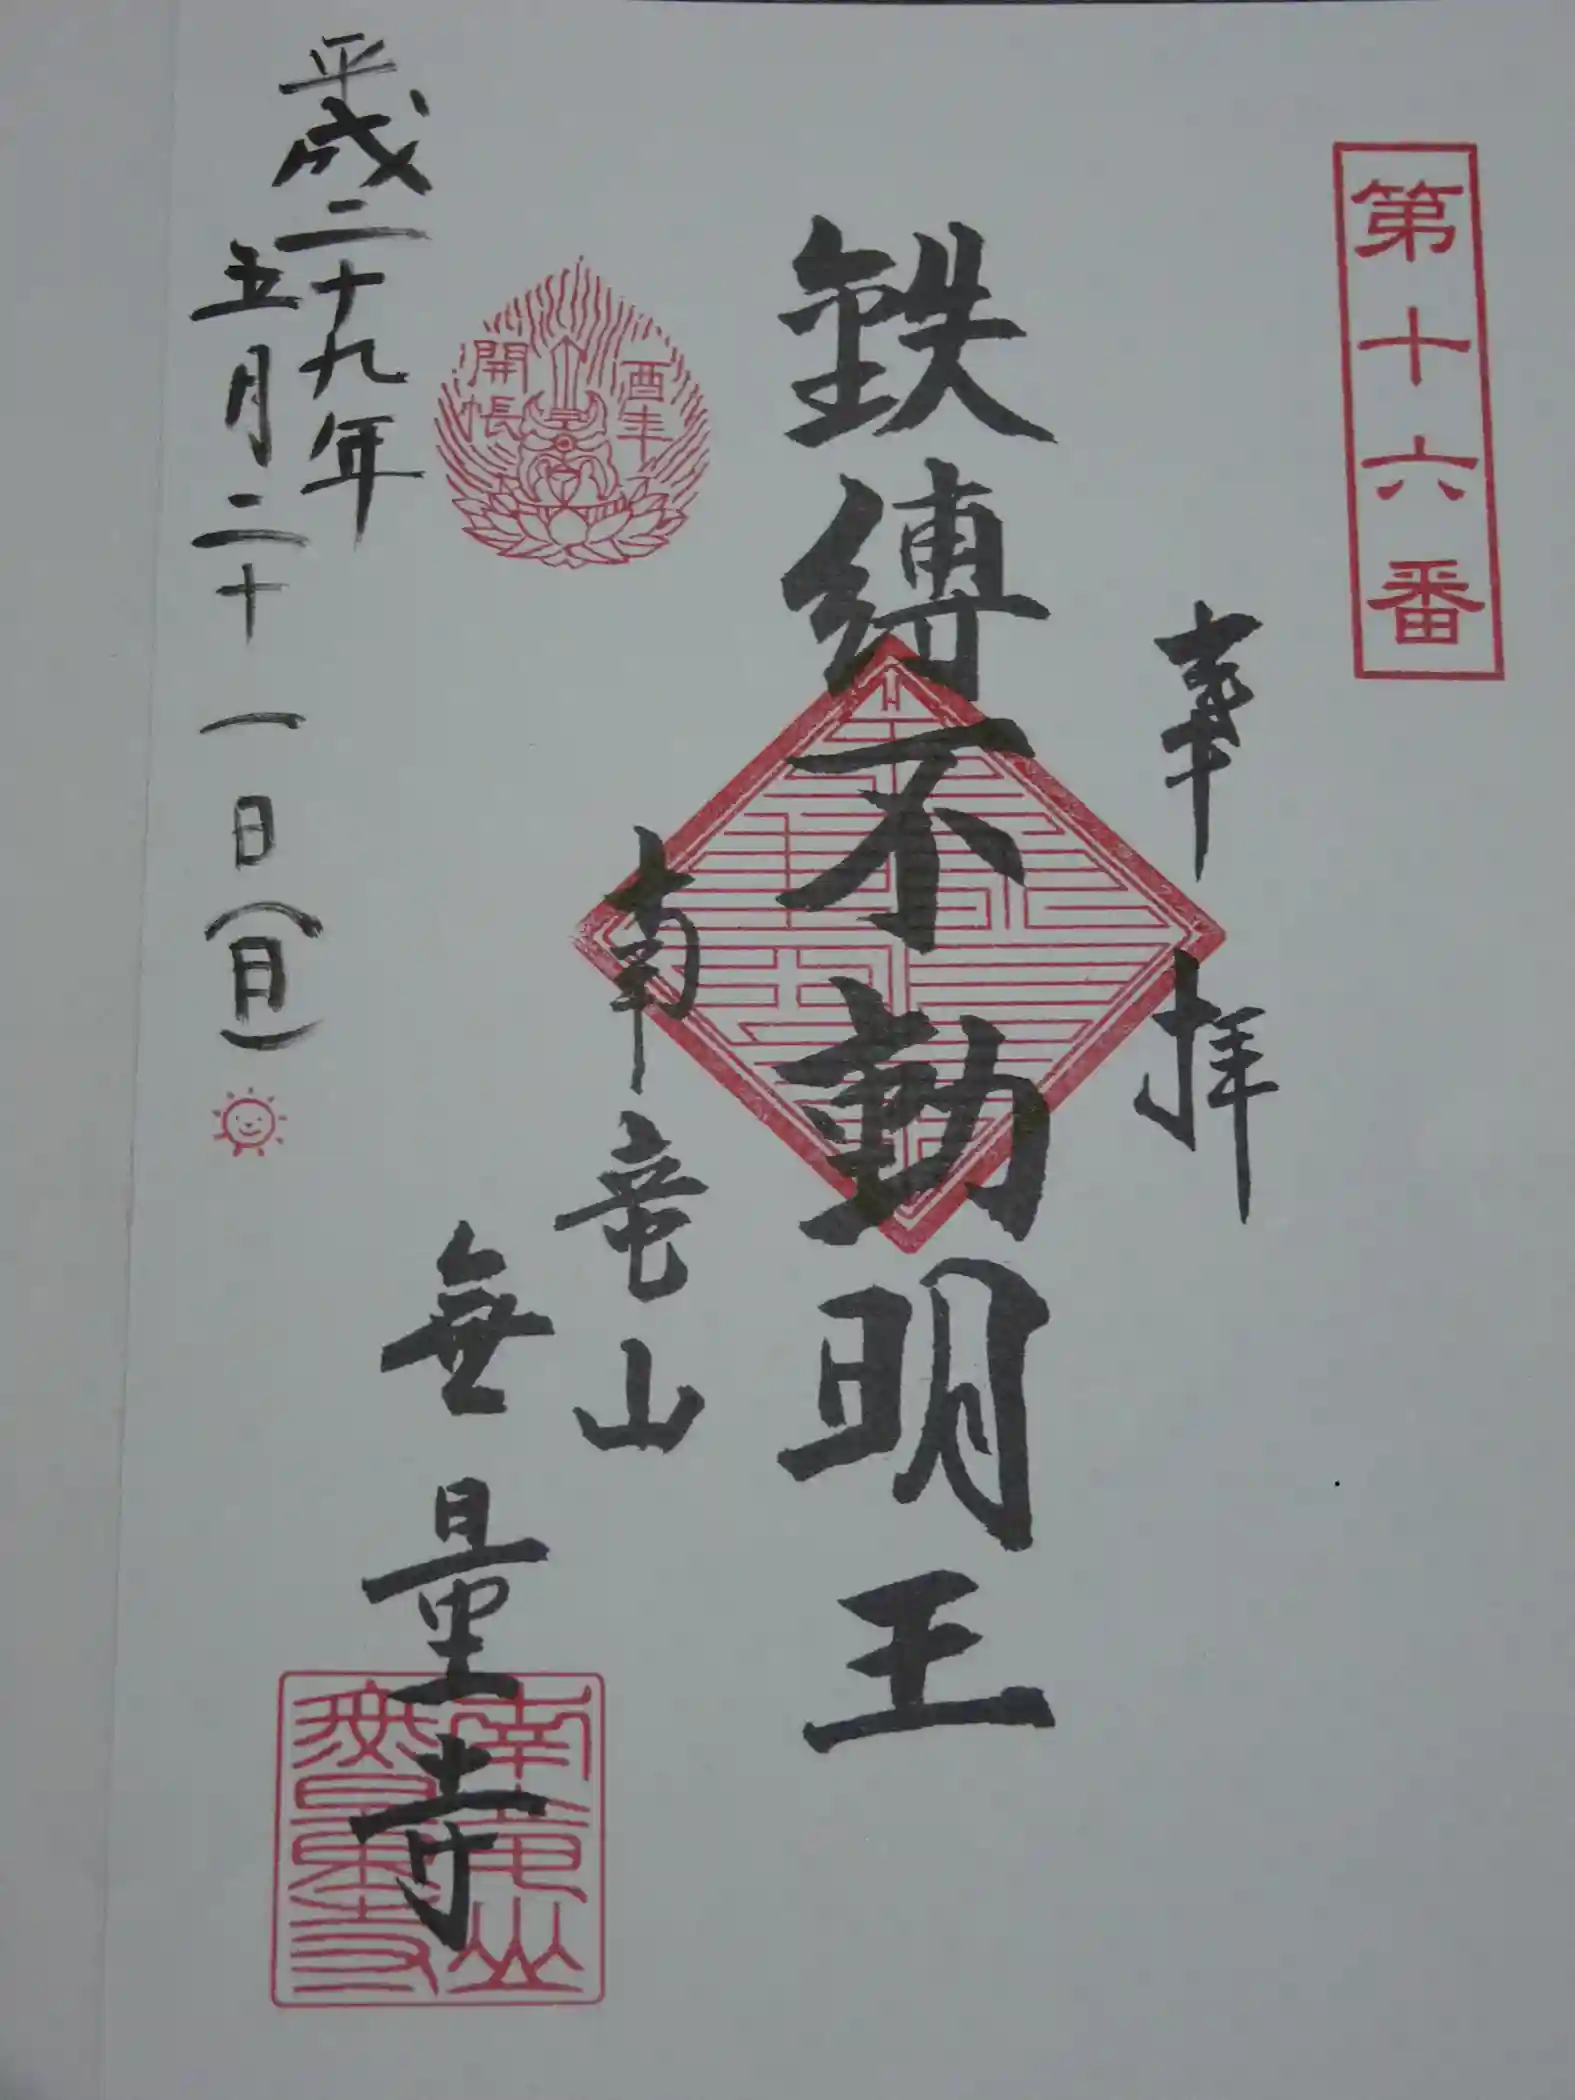 第十六番
奉拝
鉄縛不動明王
酉年
開帳
南竜山
無量寺
南竜山
無量寺
平成二十九年
五月二十一日(日)